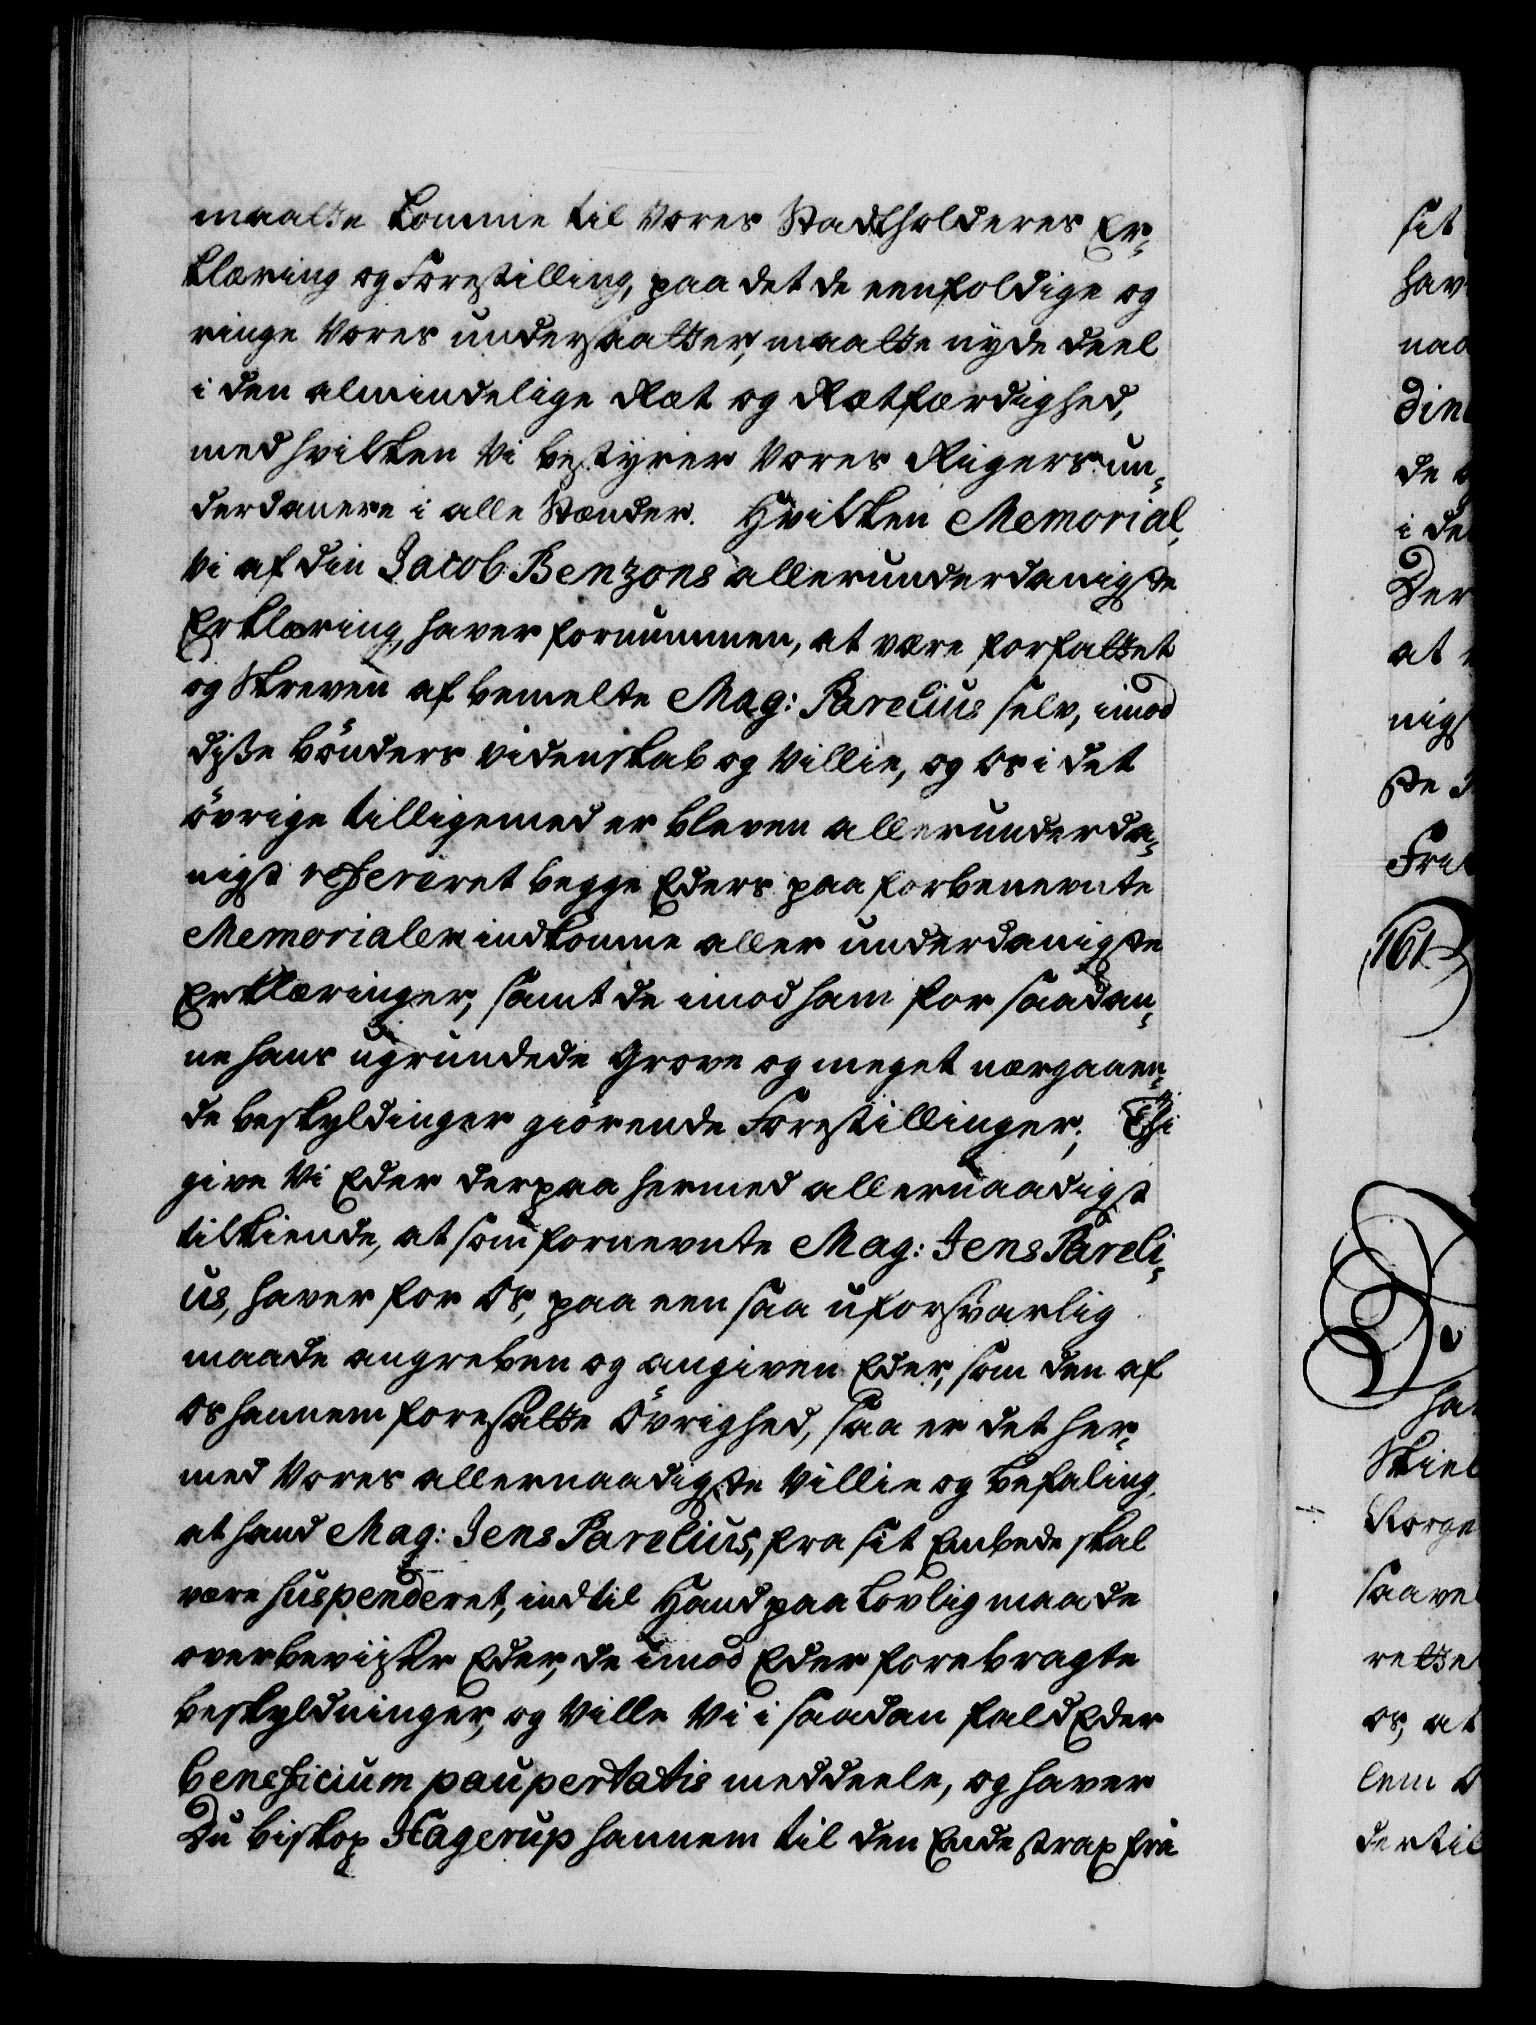 maatte komme til Vores Stadtholderes Er-
klæring og Forestilling, paa det de eenfoldige og
ringe Vores undersaatter, maatte nyde deel
i den almindelige Ræt og Rætfærdighed,
med hvilken Vi bestyrer Vores Rigers un-
derdanere i alle Stænder. Hvilken Memorial,
Vi af din Jacob Benzons allerunderdanigste
Erklæring, haver fornummen, at være forfattet
og Skreven af bemelte Mag: Parelius selv, imod
disse bönders videnskab og Villie, og Os i det
övrige tilligemed er bleven allerunderda-
nigst refereret begge Eders paa forbenevnte
Memorialer indkomne aller underdanigste
Erklæringer, samt de imod ham for saadan-
ne hans ugrundede Grove og meget nærgaaen-
de beskyldinger giörende Forestillinger; Thi
give Vi Eder derpaa hermed allernaadigst
tilkiende, at som fornevnte Mag: Jens Pareli-
us, haver for Os, paa een saa uforsvarlig
maade angreben og angiven Eder, som den af
Os hannem foresatte Övrighed, saa er det her-
med Vores allernaadigste Villie og befaling,
at hand Mag: Jens Parelius, fra sit Embede skal
være suspenderet, indtil Hand paa Lovlig maade
overbeviiser Eder, de imod Eder forebragte
beskyldninger, og Ville Vi i saadan fald Eder
beneficium paupertatis meddeele, og haver
Du biskop Hagerup hannem til den Ende strax fra
sit
hav
naa
din
de
i de
Der
at
nigs
ste
Fri
161
ha
Skiel
Norge
saavel
rette
os, at
lem
dertil